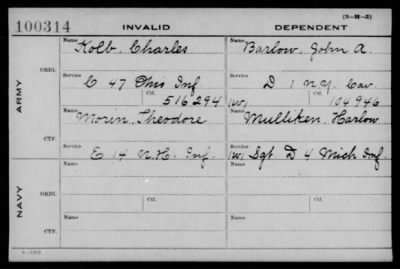 (3-H-3)
100314 INVALID DEPENDENT
Name Kolb, Charles Name Barlow, John A.
ARMY
ORIG.
Service C 47 Ohio Inf Service D 1 N.Y. Cav
Ctf. 516294 (W) Ctf. 104946
CTF.
Name Morin, Theodore Name Mulliken, Harlow
Service E 14 N.H. Inf. Service (W) Sgt D 4 Mich Inf.
NAVY
ORIG.
Ctf. Ctf.
CTF.
Name Name